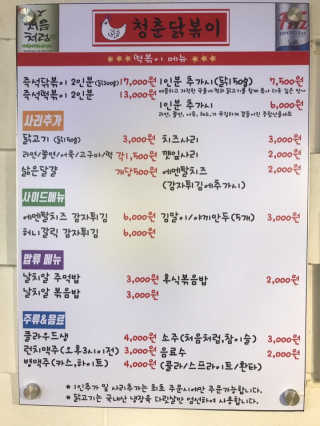 처음처럼
청춘닭볶이
떡볶이 메뉴
즉석닭볶이 2인분(닭300g) 17,000원
즉석떡볶이 2인분 13,000원
1인분 추가시(닭150g) 7,500원
1인분 추가시 6,000원
사리추가
닭고기 (닭150g) 3,000원
라면/쫄면/어묵/고구마/떡 각1,500원
삶은달걀 개당500원
치즈사리 3,000원
깻잎사리 2,000원
에멘탈치즈 2,000원
(감자튀김에추가시)
사이드메뉴
에멘탈치즈 감자튀김 6,000원
허니갈릭 감자튀김 6,000원
김말이/야끼만두(5개) 3,000원
밥류 메뉴
날치알 주먹밥 3,000원
날치알 볶음밥 3,000원
후식볶음밥 2,000원
주류&음료
클라우드생 4,000원
런치맥주(오후3시이전) 3,000원
병맥주(카스,하이트) 4,000원
소주(처음처럼,참이슬) 3,000원
음료수 2,000원
(콜라/스프라이트/환타)
* 1인추가 및 사리추가는 최초 주문시에만 주문가능합니다.
* 닭고기는 국내산 냉장육 다릿살만 엄선하여 사용합니다.